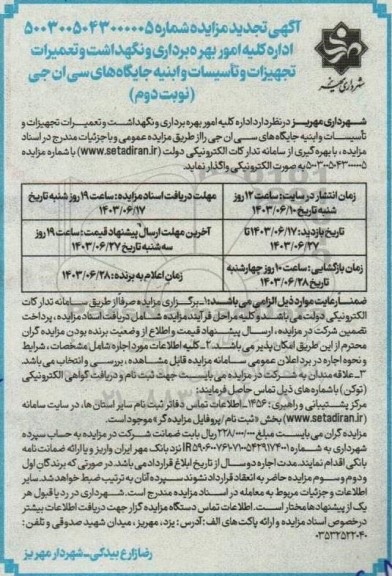 آگهی تجدید مزایده شماره ۵۰۰۳۰۰۵۰۴۳۰۰۰۰۰۵
اداره کلیه امور بهره برداری و نگهداشت و تعمیرات
تجهیزات و تأسیسات و ابنیه جایگاه های سی ان جی
(نوبت دوم)
شهرداری مهریز
شهرداری مهریز در نظر دارد اداره کلیه امور بهره برداری و نگهداشت و تعمیرات تجهیزات و
تأسیسات و ابنیه جایگاه های سی ان جی را از طریق مزایده عمومی و با جزئیات مندرج در اسناد
مزایده، با بهره گیری از سامانه تدارکات الکترونیکی دولت (www.setadiran.ir) با شماره مزایده
۵۰۰۳۰۰۵۰۴۳۰۰۰۰۰۵ به صورت الکترونیکی واگذار نماید.
زمان انتشار در سایت: ساعت ۱۲ روز
شنبه تاریخ ۱۴۰۳/۰۶/۱۰
مهلت دریافت اسناد مزایده: ساعت ۱۹ روز شنبه تاریخ
۱۴۰۳/۰۶/۱۷
تاریخ بازدید: ۱۴۰۳/۰۶/۱۷ تا
۱۴۰۳/۰۶/۲۷
آخرین مهلت ارسال پیشنهاد قیمت: ساعت ۱۹ روز
سه شنبه تاریخ ۱۴۰۳/۰۶/۲۷
زمان بازگشایی: ساعت ۱۰ روز چهارشنبه
تاریخ ۱۴۰۳/۰۶/۲۸
زمان اعلام به برنده: ۱۴۰۳/۰۶/۲۸
ضمناً رعایت موارد ذیل الزامی می باشد: ۱ـ برگزاری مزایده صرفاً از طریق سامانه تدارکات
الکترونیکی دولت می باشد و کلیه مراحل فرآیند مزایده شامل دریافت اسناد مزایده، پرداخت
تضمین شرکت در مزایده، ارسال پیشنهاد قیمت و اطلاع از وضعیت برنده بودن مزایده گران
محترم از این طریق امکان پذیر می باشد. ۲ـ کلیه اطلاعات مورد اجاره شامل مشخصات، شرایط
و نحوه اجاره در برد اعلان عمومی سامانه مزایده قابل مشاهده، بررسی و انتخاب می باشد.
۳ـ علاقه مندان به شرکت در مزایده می بایست جهت ثبت نام و دریافت گواهی الکترونیکی
(توکن) با شماره های ذیل تماس حاصل فرمایند:
مرکز پشتیبانی و راهبری: ۱۴۵۶ـ اطلاعات تماس دفاتر ثبت نام سایر استان ها، در سایت سامانه
(www.setadiran.ir) بخش «ثبت نام / پروفایل مزایده گر» موجود است.
مزایده گران می بایست مبلغ ۲۲۸/۰۰۰/۰۰۰ ریال بابت ضمانت شرکت در مزایده به حساب سپرده
شهرداری به شماره نزد بانک مهر ایران واریز و یا ارائه ضمانت نامه
بانکی اقدام نمایند. مدت اجاره دو سال از تاریخ ابلاغ قرارداد می باشد. در صورتی که برندگان اول
و دوم و سوم مزایده حاضر به انعقاد قرارداد نشوند سپرده آنان به ترتیب ضبط خواهد شد. سایر
اطلاعات و جزئیات مربوط به معامله در اسناد مزایده مندرج است. شهرداری در رد یا قبول هر
یک از پیشنهادها مختار است. اطلاعات تماس دستگاه مزایده گزار جهت دریافت اطلاعات بیشتر
در خصوص اسناد مزایده و ارائه پاکت های الف: آدرس: یزد، مهریز، میدان شهید صدوقی و تلفن:
۰۳۵۳۲۵۲۲۰۴۰
رضا زارع بیدکی ـ شهردار مهریز